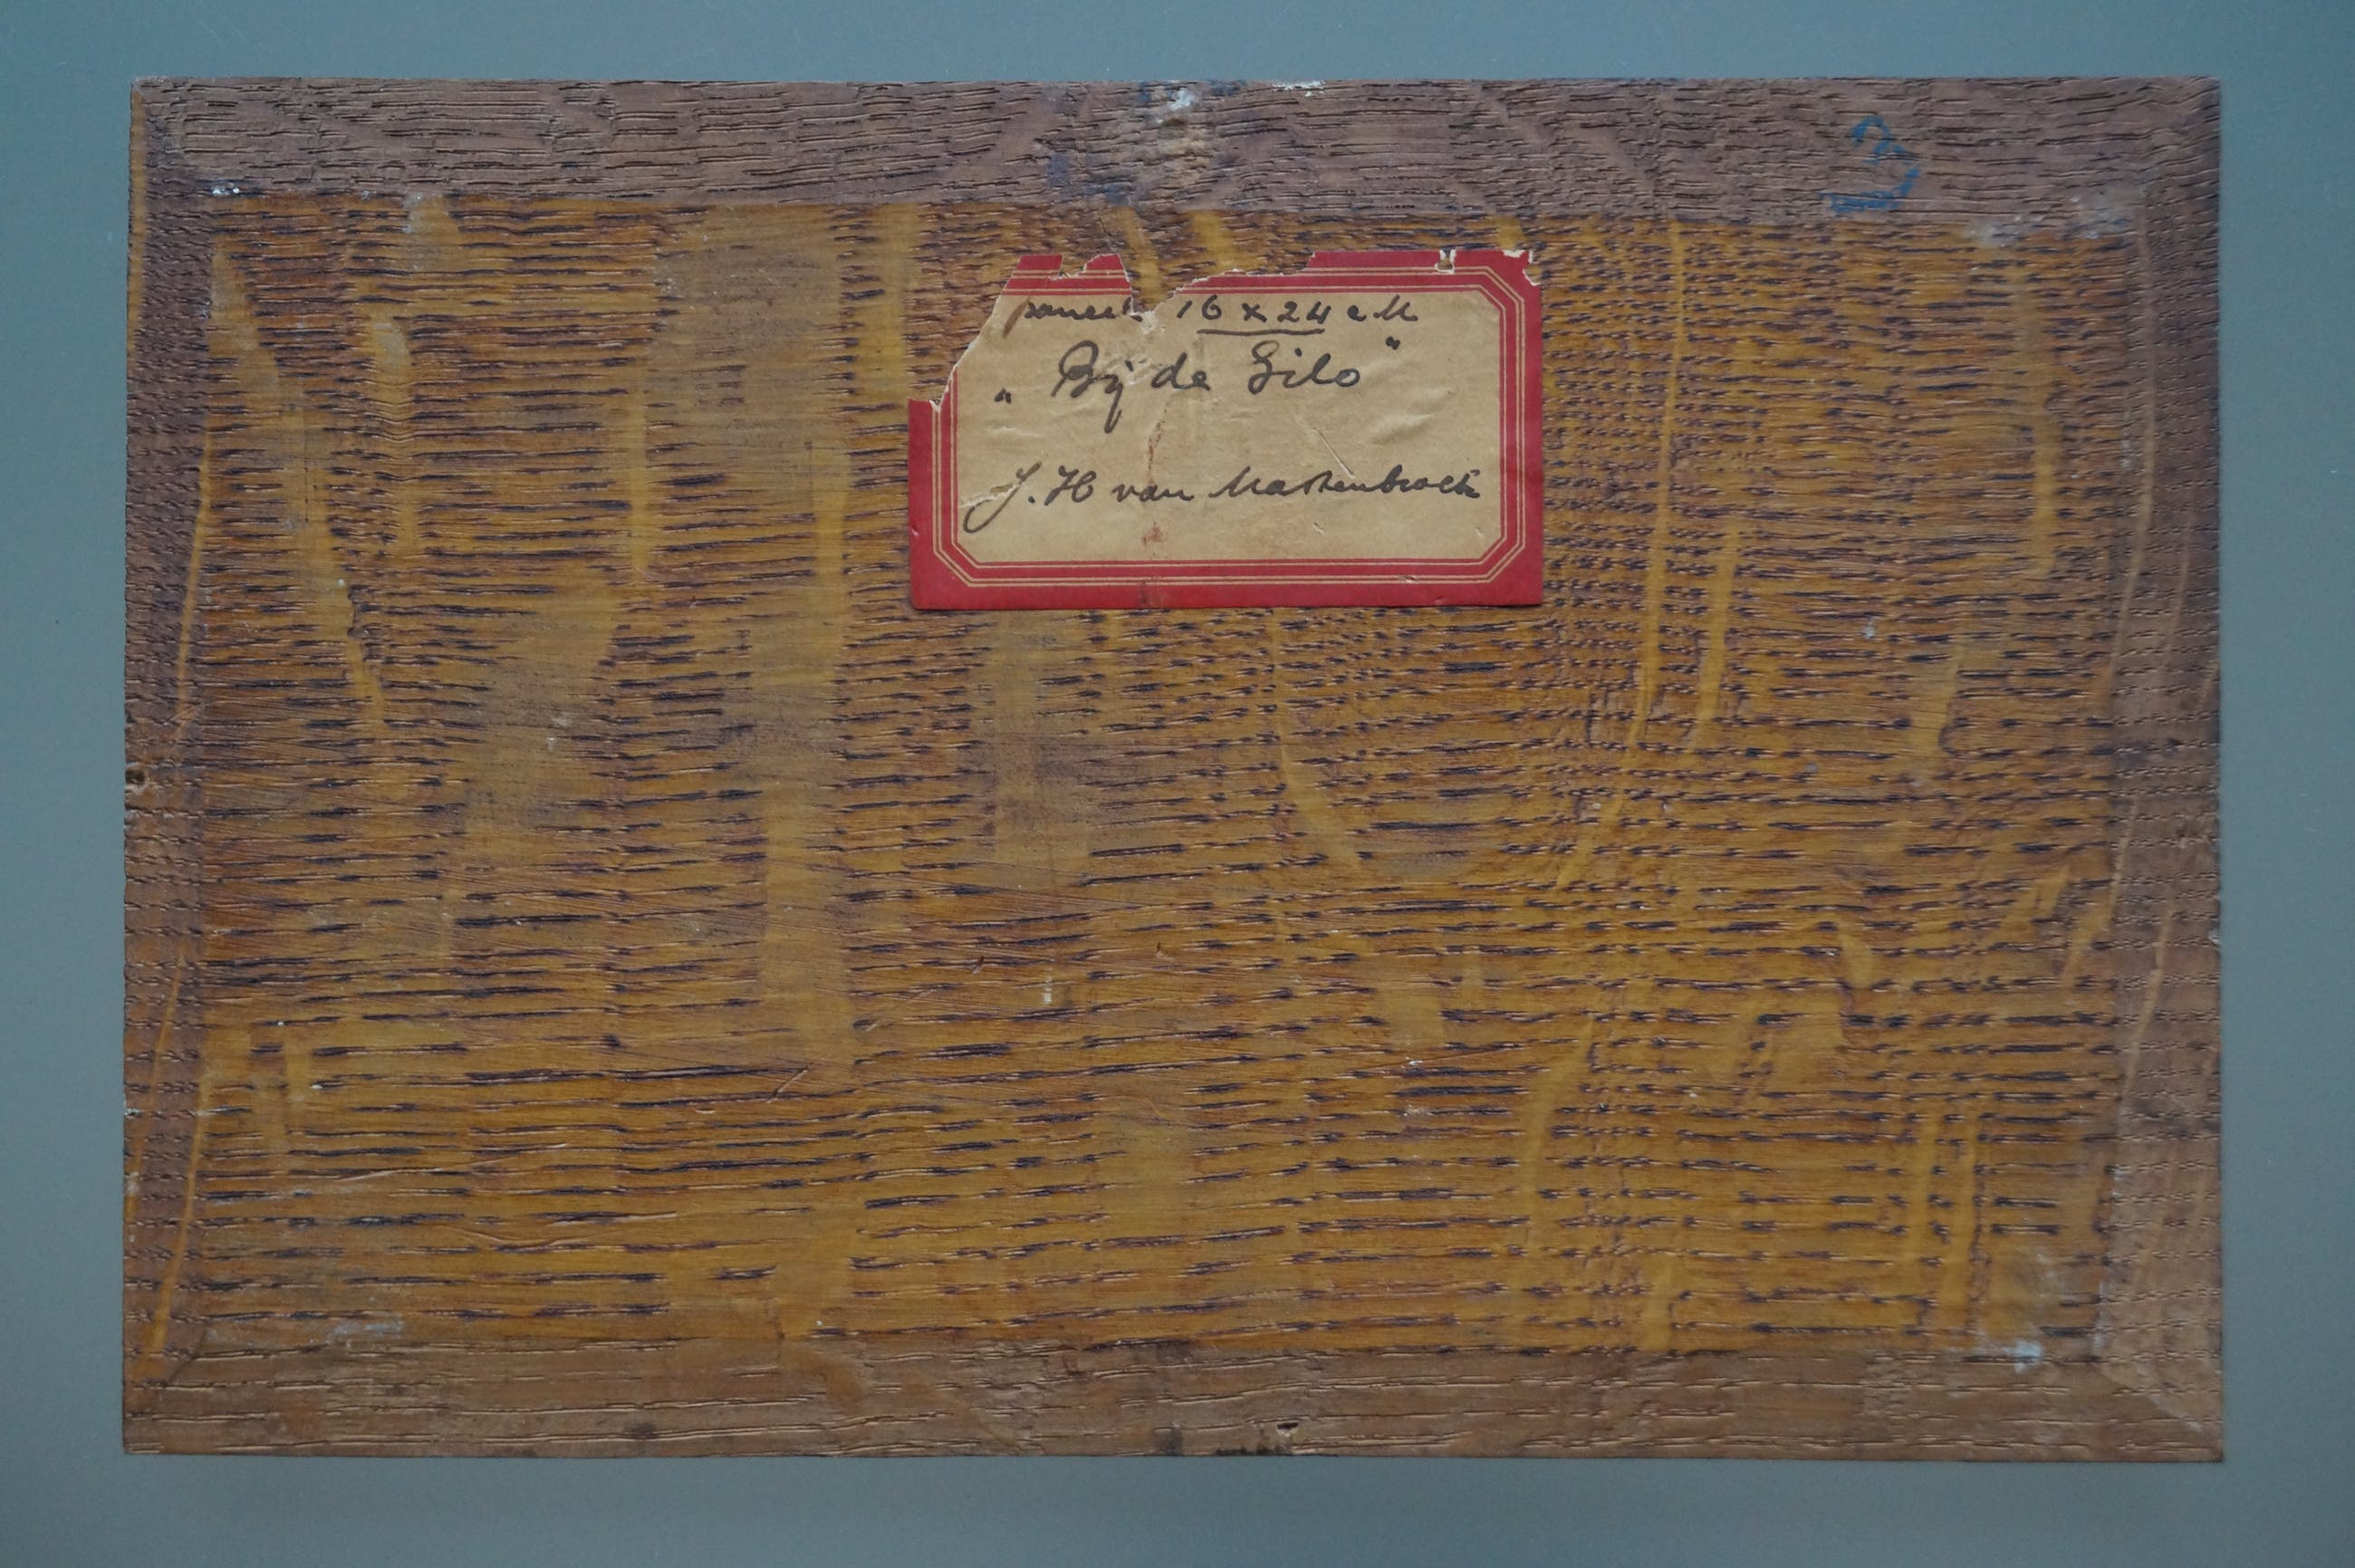 3
paneel 16 x 24 cM
„Bij de Silo"
J. H van Mastenbroek